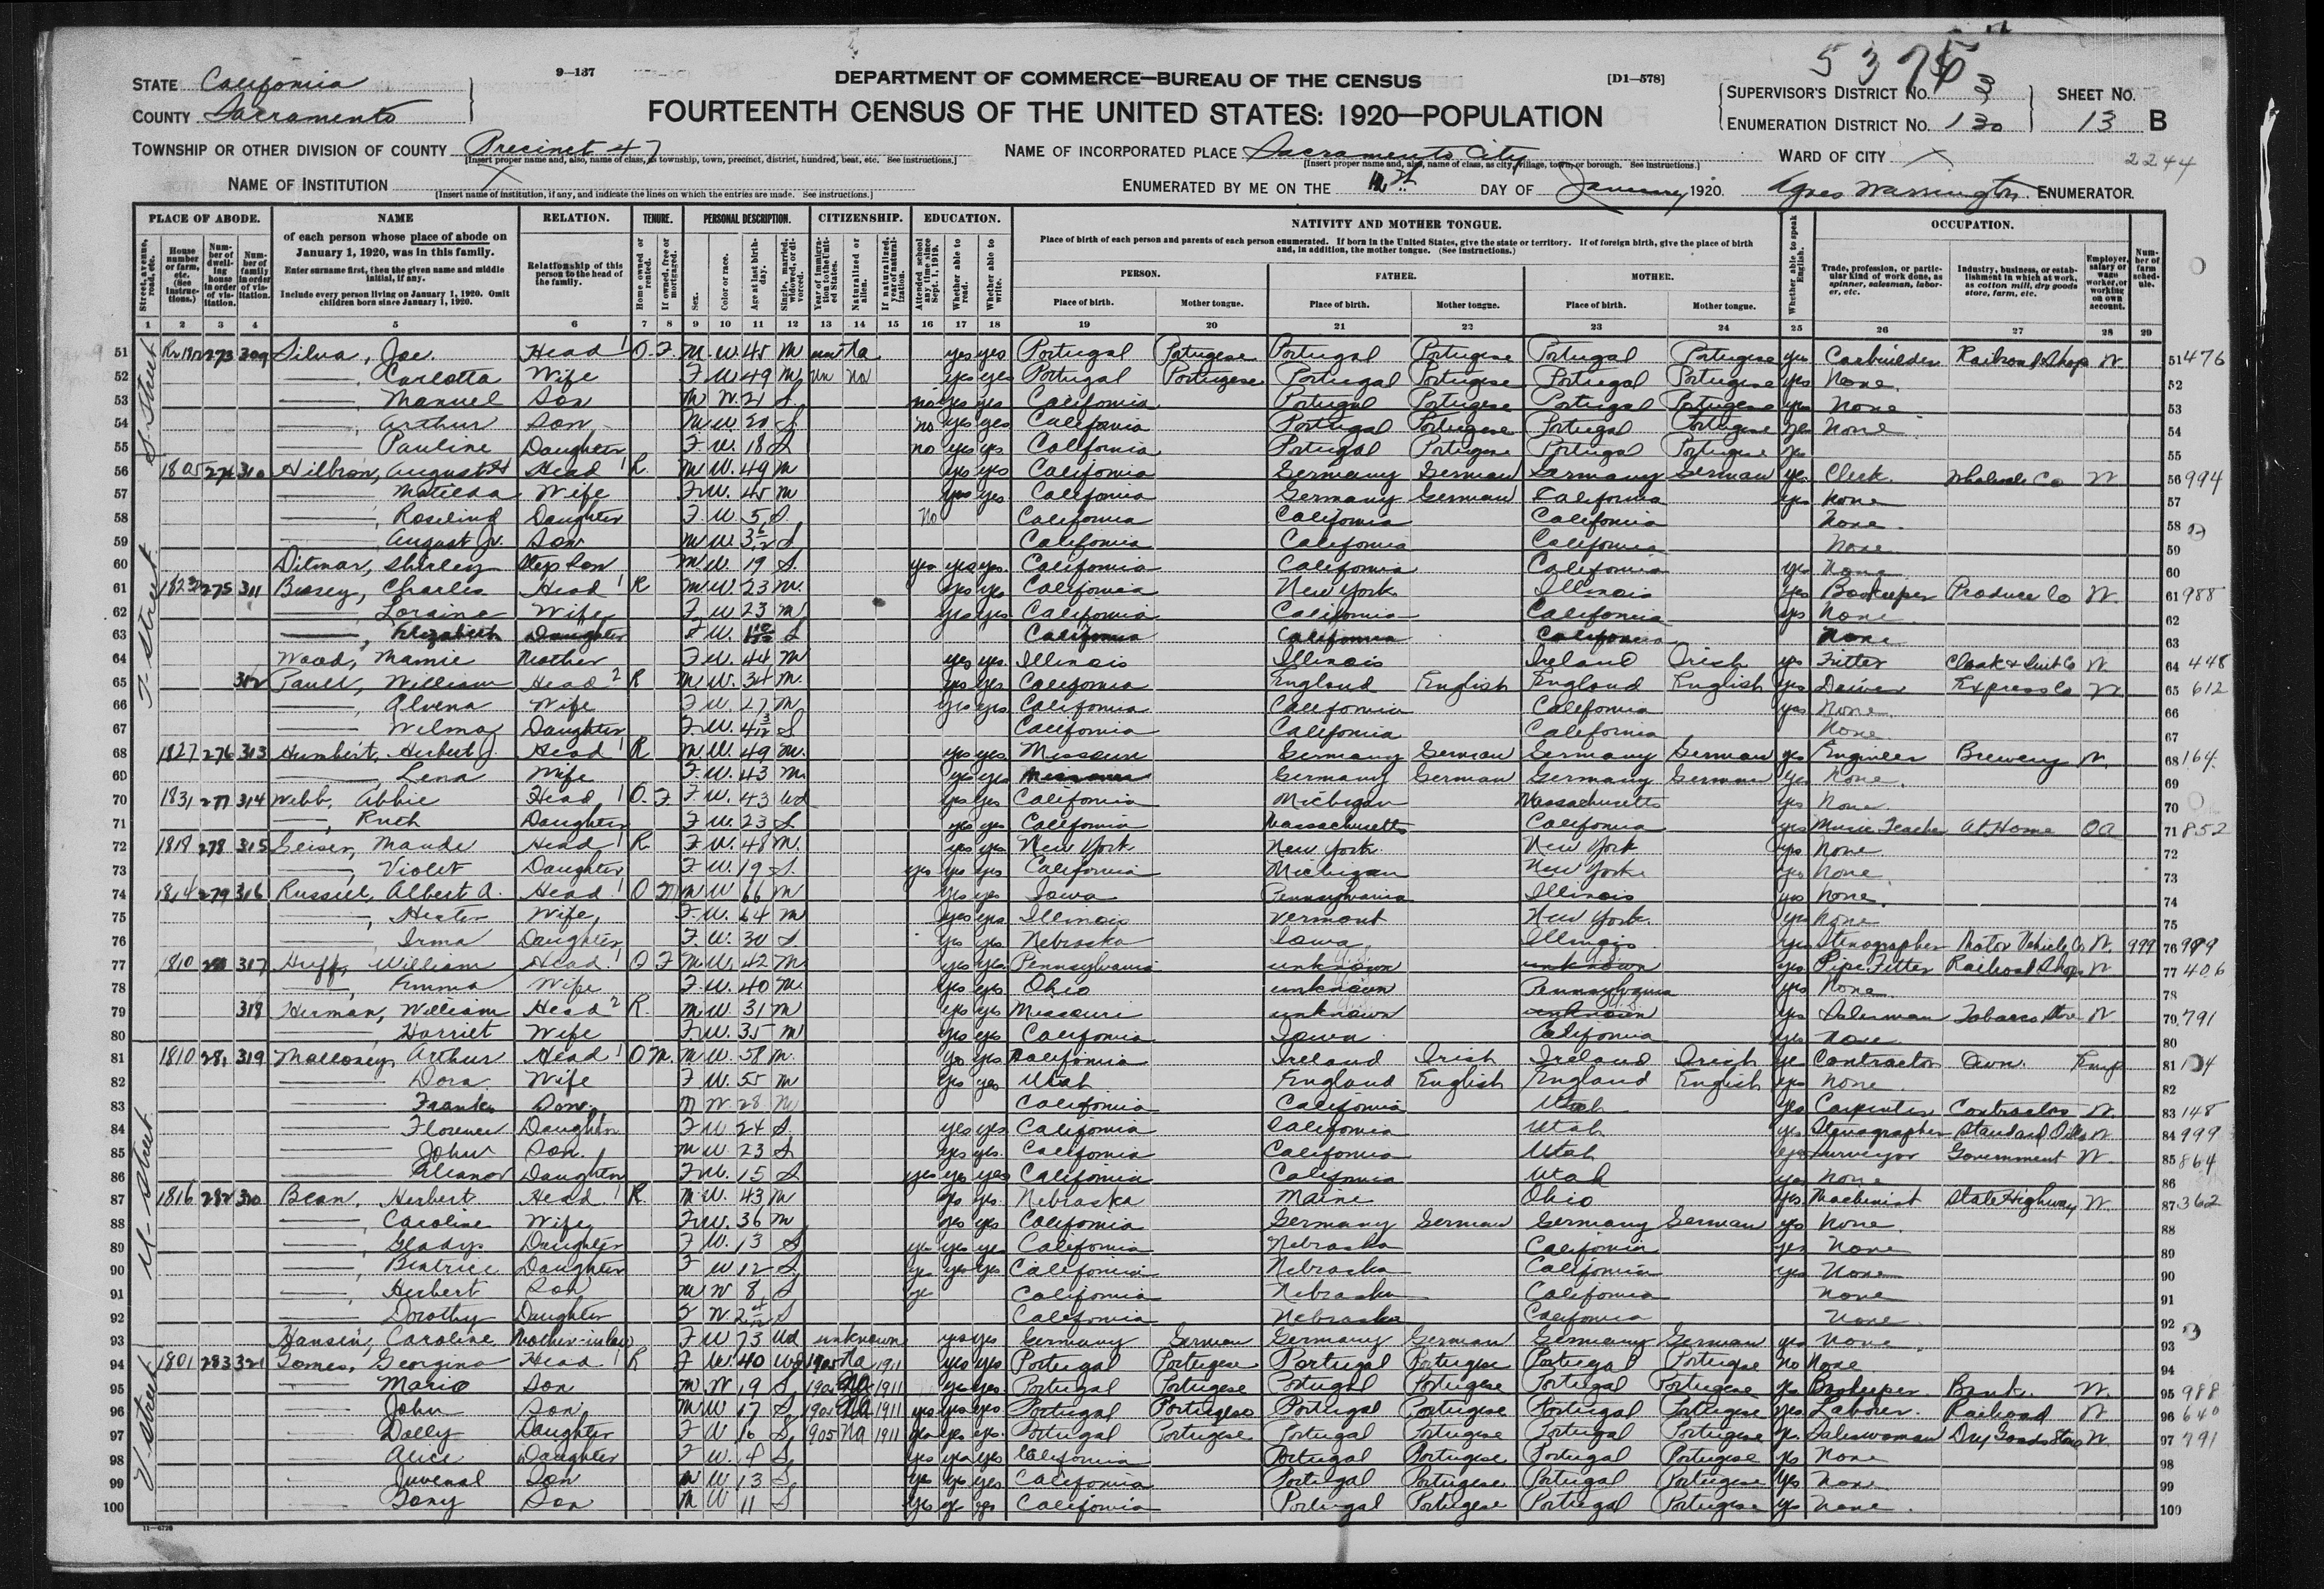 STATE California
COUNTY Sacramento
9—137
DEPARTMENT OF COMMERCE—BUREAU OF THE CENSUS
[D1—578]
FOURTEENTH CENSUS OF THE UNITED STATES: 1920—POPULATION
SUPERVISOR'S DISTRICT NO. 3
ENUMERATION DISTRICT NO. 130
SHEET NO. 13 B
2244
TOWNSHIP OR OTHER DIVISION OF COUNTY Precinct 47
[Insert proper name and, also, name of class, as township, town, precinct, district, hundred, beat, etc. See instructions.]
NAME OF INCORPORATED PLACE Sacramento City
[Insert proper name and, also, name of class, as city, village, town, or borough. See instructions.]
WARD OF CITY X
NAME OF INSTITUTION X
[Insert name of institution, if any, and indicate the lines on which the entries are made. See instructions.]
ENUMERATED BY ME ON THE DAY OF January 1920. Agnes Warrington ENUMERATOR.
PLACE OF ABODE. NAME RELATION. TENURE. PERSONAL DESCRIPTION. CITIZENSHIP. EDUCATION. NATIVITY AND MOTHER TONGUE. OCCUPATION.
of each person whose place of abode on January 1, 1920, was in this family.
Enter surname first, then the given name and middle initial, if any.
Include every person living on January 1, 1920. Omit children born since January 1, 1920.
Relationship of this person to the head of the family.
Place of birth of each person and parents of each person enumerated. If born in the United States, give the state or territory. If of foreign birth, give the place of birth and, in addition, the mother tongue. (See instructions.)
PERSON. FATHER. MOTHER.
Place of birth. Mother tongue. Place of birth. Mother tongue. Place of birth. Mother tongue.
1 2 3 4 5 6 7 8 9 10 11 12 13 14 15 16 17 18 19 20 21 22 23 24 25 26 27 28 29
51 273 309 Silva, Joe Head 1 O F M W 45 M un Na yes yes Portugal Portugese Portugal Portugese Portugal Portugese yes Carbuilder Railroad Shop W 51 476
52 Carlotta Wife F W 49 M un Na yes yes Portugal Portugese Portugal Portugese Portugal Portugese yes None 52
53 Manuel Son M W 21 S no yes yes California Portugal Portugese Portugal Portugese yes None 53
54 Arthur Son M W 20 S no yes yes California Portugal Portugese Portugal Portugese yes None 54
55 Pauline Daughter F W 18 S no yes yes California Portugal Portugese Portugal Portugese yes 55
56 1805 274 310 Hilbron, August H Head 1 R M W 49 M yes yes California Germany German Germany German yes Clerk Wholesale Co W 56 994
57 Matilda Wife F W 45 M yes yes California Germany German California yes None 57
58 Roselind Daughter F W 5 S No California California California None 58
59 August Jr. Son M W 3 6/12 S California California California None 59
60 Ditmar, Shirley Step Son M W 19 S yes yes yes California California California yes None 60
61 1823 275 311 Bessey, Charles Head 1 R M W 23 M yes yes California New York Illinois yes Bookeeper Produce Co W 61 988
62 Loraine Wife F W 23 M yes yes California California California yes None 62
63 Elizabeth Daughter F W S California California California None 63
64 Wood, Mamie Mother F W 44 M yes yes Illinois Illinois Ireland Irish yes Fitter Cloak & Suit Co W 64 448
65 312 Paull, William Head 2 R M W 34 M yes yes California England English England English yes Driver Express Co W 65 612
66 Alvena Wife F W 27 M yes yes California California California yes None 66
67 Wilma Daughter F W 4 3/12 S California California California None 67
68 1827 276 313 Humbert, Herbert J. Head 1 R M W 49 M yes yes Missouri Germany German Germany German yes Engineer Brewery W 68 164
69 Lena Wife F W 43 M yes yes Missouri Germany German Germany German yes None 69
70 1831 277 314 Webb, Abbie Head 1 O F F W 43 Wd yes yes California Michigan Massachusetts yes None 70
71 Ruth Daughter F W 23 S yes yes California Massachusetts California yes Music Teacher At Home OA 71 852
72 1819 278 315 Geiser, Maude Head 1 R F W 48 M yes yes New York New York New York yes None 72
73 Violet Daughter F W 19 S yes yes yes California Michigan New York yes None 73
74 1814 279 316 Russell, Albert A. Head 1 O M M W 66 M yes yes Iowa Pennsylvania Illinois yes None 74
75 Hester Wife F W 64 M yes yes Illinois Vermont New York yes None 75
76 Irma Daughter F W 30 S yes yes Nebraska Iowa Illinois yes Stenographer Motor Vehicle Co W 999 76 999
77 1810 280 317 Huff, William Head 1 O F M W 42 M yes yes Pennsylvania unknown unknown yes Pipe Fitter Railroad Shops W 77 406
78 Emma Wife F W 40 M yes yes Ohio unknown Pennsylvania yes None 78
79 318 Herman, William Head 2 R M W 31 M yes yes Missouri unknown unknown yes Salesman Tobacco Store W 79 791
80 Harriet Wife F W 35 M yes yes California Iowa California yes None 80
81 1810 281 319 Mallosey, Arthur Head 1 O M M W 58 M yes yes California Ireland Irish Ireland Irish yes Contractor Own Emp 81
82 Dora Wife F W 55 M yes yes Utah England English England English yes None 82
83 Frank Son M W 28 M California California Utah yes Carpenter Contractor W 83 148
84 Florence Daughter F W 24 S yes yes California California Utah yes Stenographer Standard Oil Co W 84 999
85 John Son M W 23 S yes yes California California Utah yes Surveyor Government W 85 864
86 Eleanor Daughter F W 15 S yes yes yes California California Utah yes None 86
87 1816 282 320 Bean, Herbert Head 1 R M W 43 M yes yes Nebraska Maine Ohio yes Machinist State Highway W 87 362
88 Caroline Wife F W 36 M yes yes California Germany German Germany German yes None 88
89 Gladys Daughter F W 13 S yes yes yes California Nebraska California yes None 89
90 Beatrice Daughter F W 12 S yes yes yes California Nebraska California yes None 90
91 Herbert Son M W 8 S yes California Nebraska California None 91
92 Dorothy Daughter F W S California Nebraska California None 92
93 Hansen, Caroline Mother-in-law F W 73 Wd unknown yes yes Germany German Germany German Germany German yes None 93
94 1801 283 321 Gomes, Georgina Head 1 R F W 40 Wd 1905 Na 1911 yes yes Portugal Portugese Portugal Portugese Portugal Portugese no None 94
95 Mario Son M W 19 S 1905 Na 1911 yes yes Portugal Portugese Portugal Portugese Portugal Portugese yes Bookeeper Bank W 95 988
96 John Son M W 17 S 1905 Na 1911 yes yes yes Portugal Portugese Portugal Portugese Portugal Portugese yes Laborer Railroad W 96 640
97 Dolly Daughter F W 16 S 1905 Na 1911 yes yes yes Portugal Portugese Portugal Portugese Portugal Portugese yes Saleswoman Dry Goods Store W 97 791
98 Alice Daughter F W S yes yes yes California Portugal Portugese Portugal Portugese yes None 98
99 Juvenal Son M W 13 S yes yes yes California Portugal Portugese Portugal Portugese yes None 99
100 Tony Son M W 11 S yes yes yes California Portugal Portugese Portugal Portugese yes None 100
11—6720